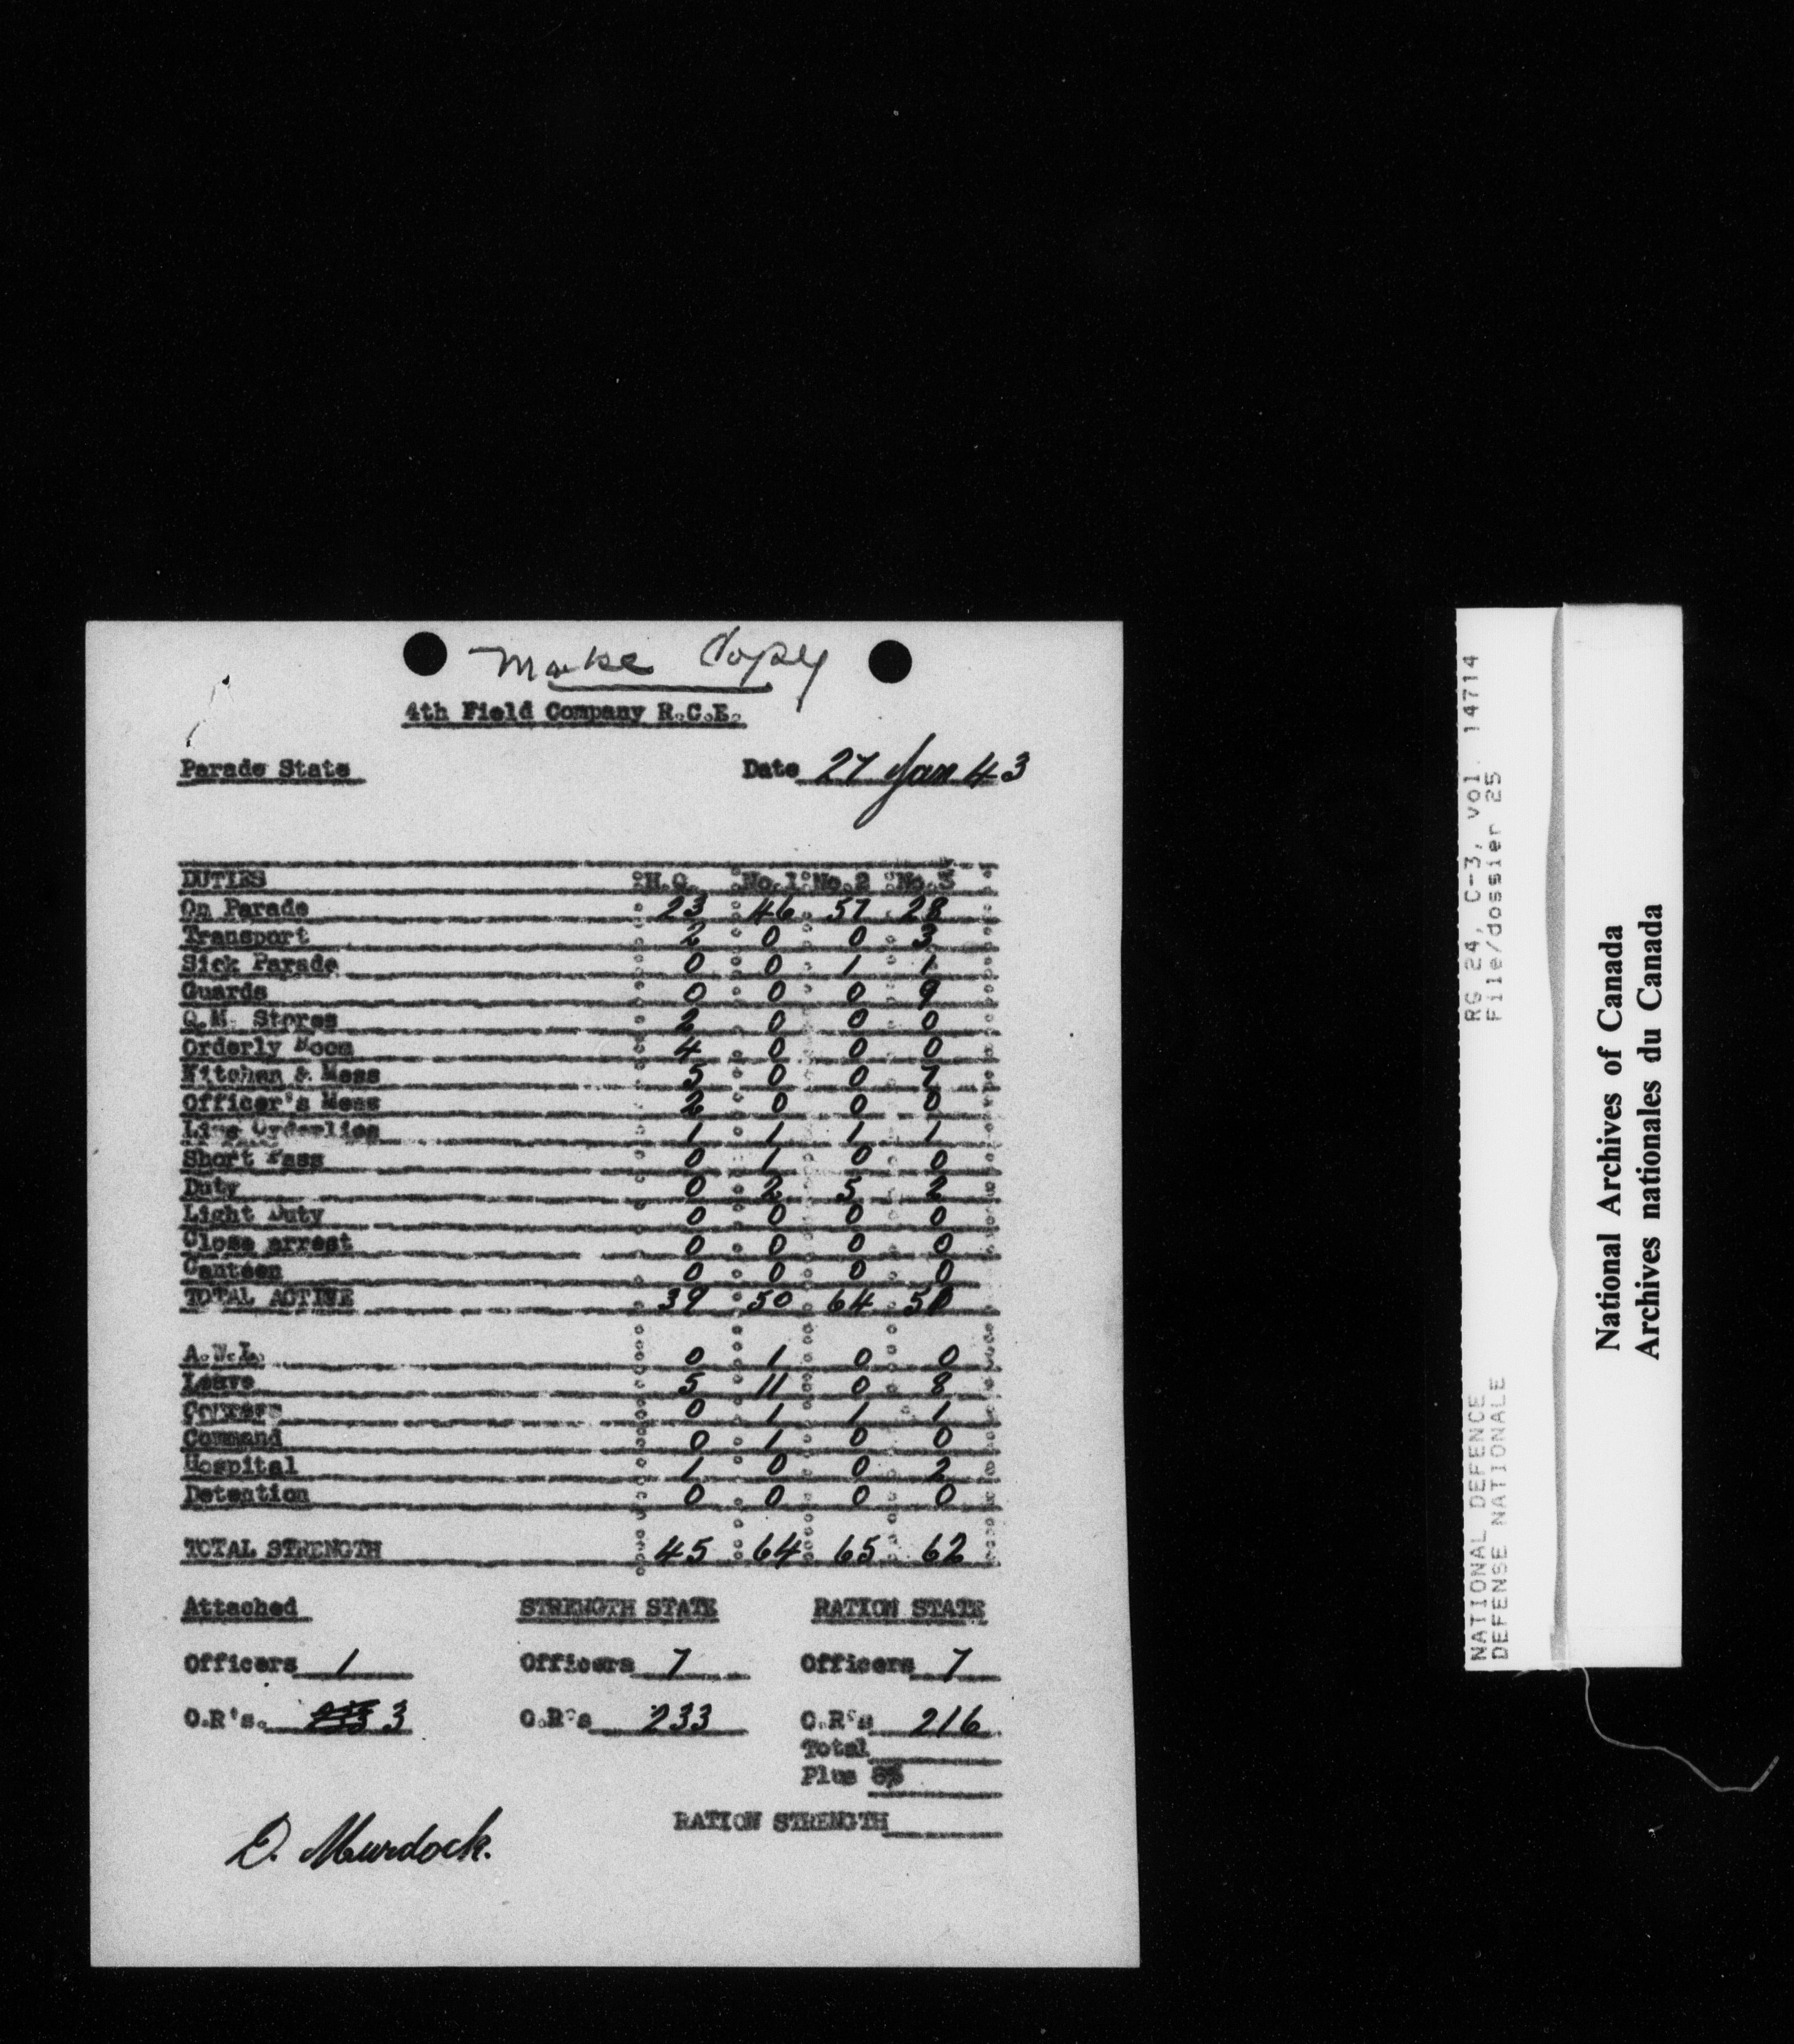 Make Copy
4th Field Company R.C.E.
Parade State Date 27 Jan 43
DUTIES H.Q. No.1 No.2 No.3
On Parade 23 46 57 28
Transport 2 0 0 3
Sick Parade 0 0 1 1
Guards 0 0 0 9
Q.M. Stores 2 0 0 0
Orderly Room 4 0 0 0
Kitchen & Mess 5 0 0 7
Officer's Mess 2 0 0 0
Line Orderlies 1 1 1 1
Short Pass 0 1 0 0
Duty 0 2 5 2
Light Duty 0 0 0 0
Close arrest 0 0 0 0
Canteen 0 0 0 0
TOTAL ACTIVE 39 50 64
A.W.L. 0 1 0 0
Leave 5 11 0 8
0 1 1 1
Command 0 1 0 0
Hospital 1 0 0 2
Detention 0 0 0 0
TOTAL STRENGTH 45 64 65 62
Attached STRENGTH STATE RATION STATE
Officers 1 Officers 7 Officers 7
O.R's. 3 O.R's 233 O.R's 216
Total
Plus
RATION STRENGTH
D. Murdock.
RG 24, C-3, vol. 14714
File/dossier 25
NATIONAL DEFENCE
DEFENSE NATIONALE
National Archives of Canada
Archives nationales du Canada